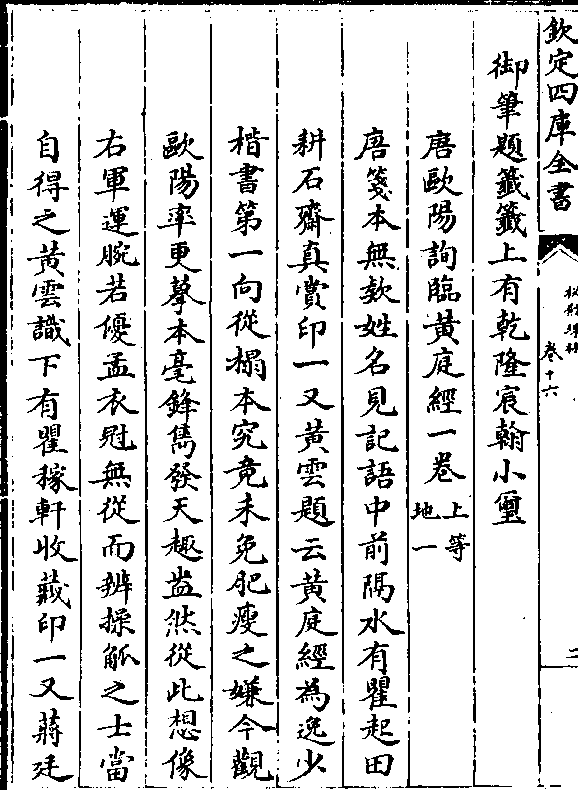 欽定四庫全書
卷十六
二
御筆題籤籤上有乾隆宸翰小璽
唐歐陽詢臨黃庭經一卷上等地一
唐箋本無欵姓名見記語中前隔水有瞿起田
耕石齋真賞印一又黃雲題云黃庭經為逸少
楷書第一向從榻本究竟未免肥瘦之嫌今觀
歐陽率更摹本毫鋒雋發天趣盎然從此想像
右軍運腕若優孟衣冠無從而辨操觚之士當
自得之黃雲識下有瞿稼軒收藏印一又蔣廷